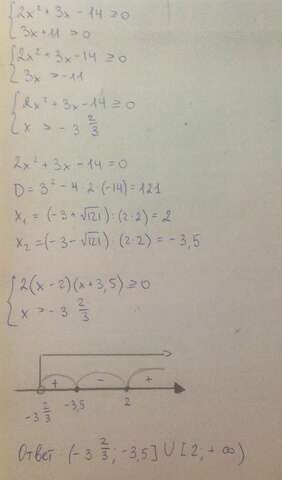 { 2x² + 3x - 14 ≥ 0
3x + 11 > 0
{ 2x² + 3x - 14 ≥ 0
3x > -11
{ 2x² + 3x - 14 ≥ 0
x > -3 2/3
2x² + 3x - 14 = 0
D = 3² - 4 · 2 · (-14) = 121
x₁ = (-3 + √121) : (2 · 2) = 2
x₂ = (-3 - √121) : (2 · 2) = -3,5
{ 2(x - 2)(x + 3,5) ≥ 0
x > -3 2/3
+ - +
-3 2/3 -3,5 2
Ответ: (-3 2/3; -3,5] ∪ [2; +∞)